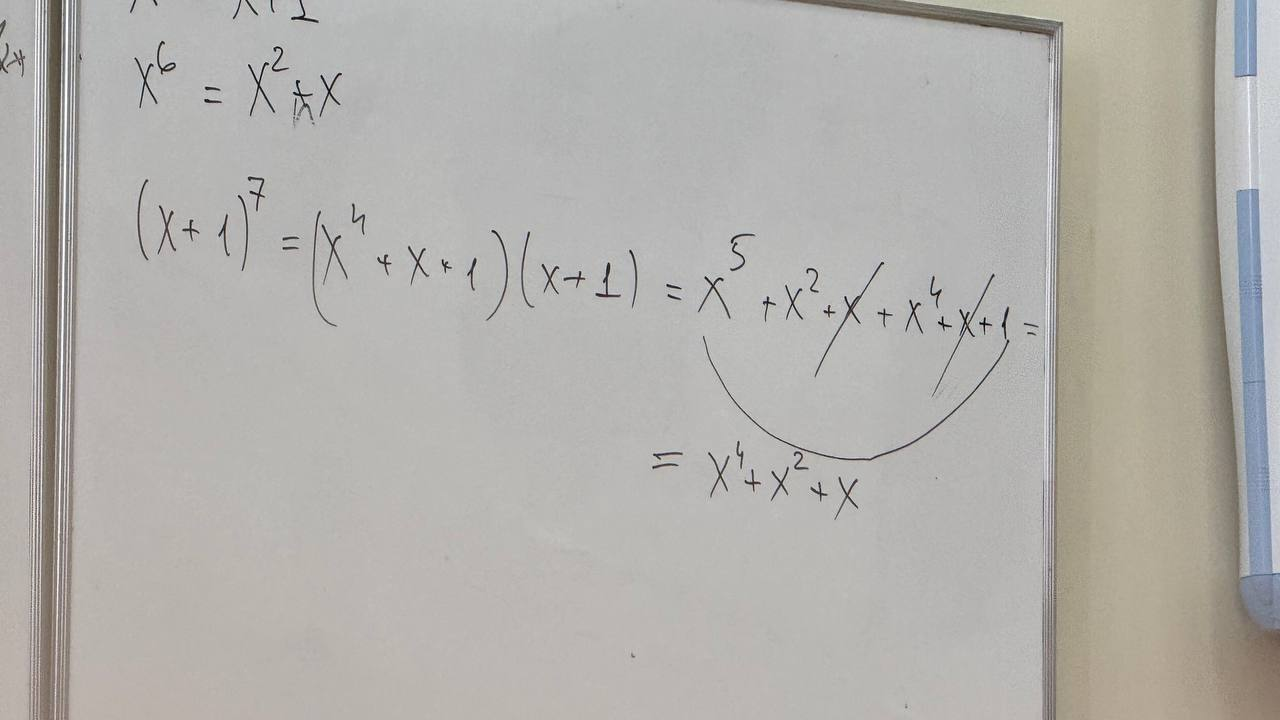 x+1
x⁶ = x² + x
(x+1)⁷ = (x⁴ + x + 1)(x+1) = x⁵ + x² + x + x⁴ + x + 1 =
= x⁴ + x² + x